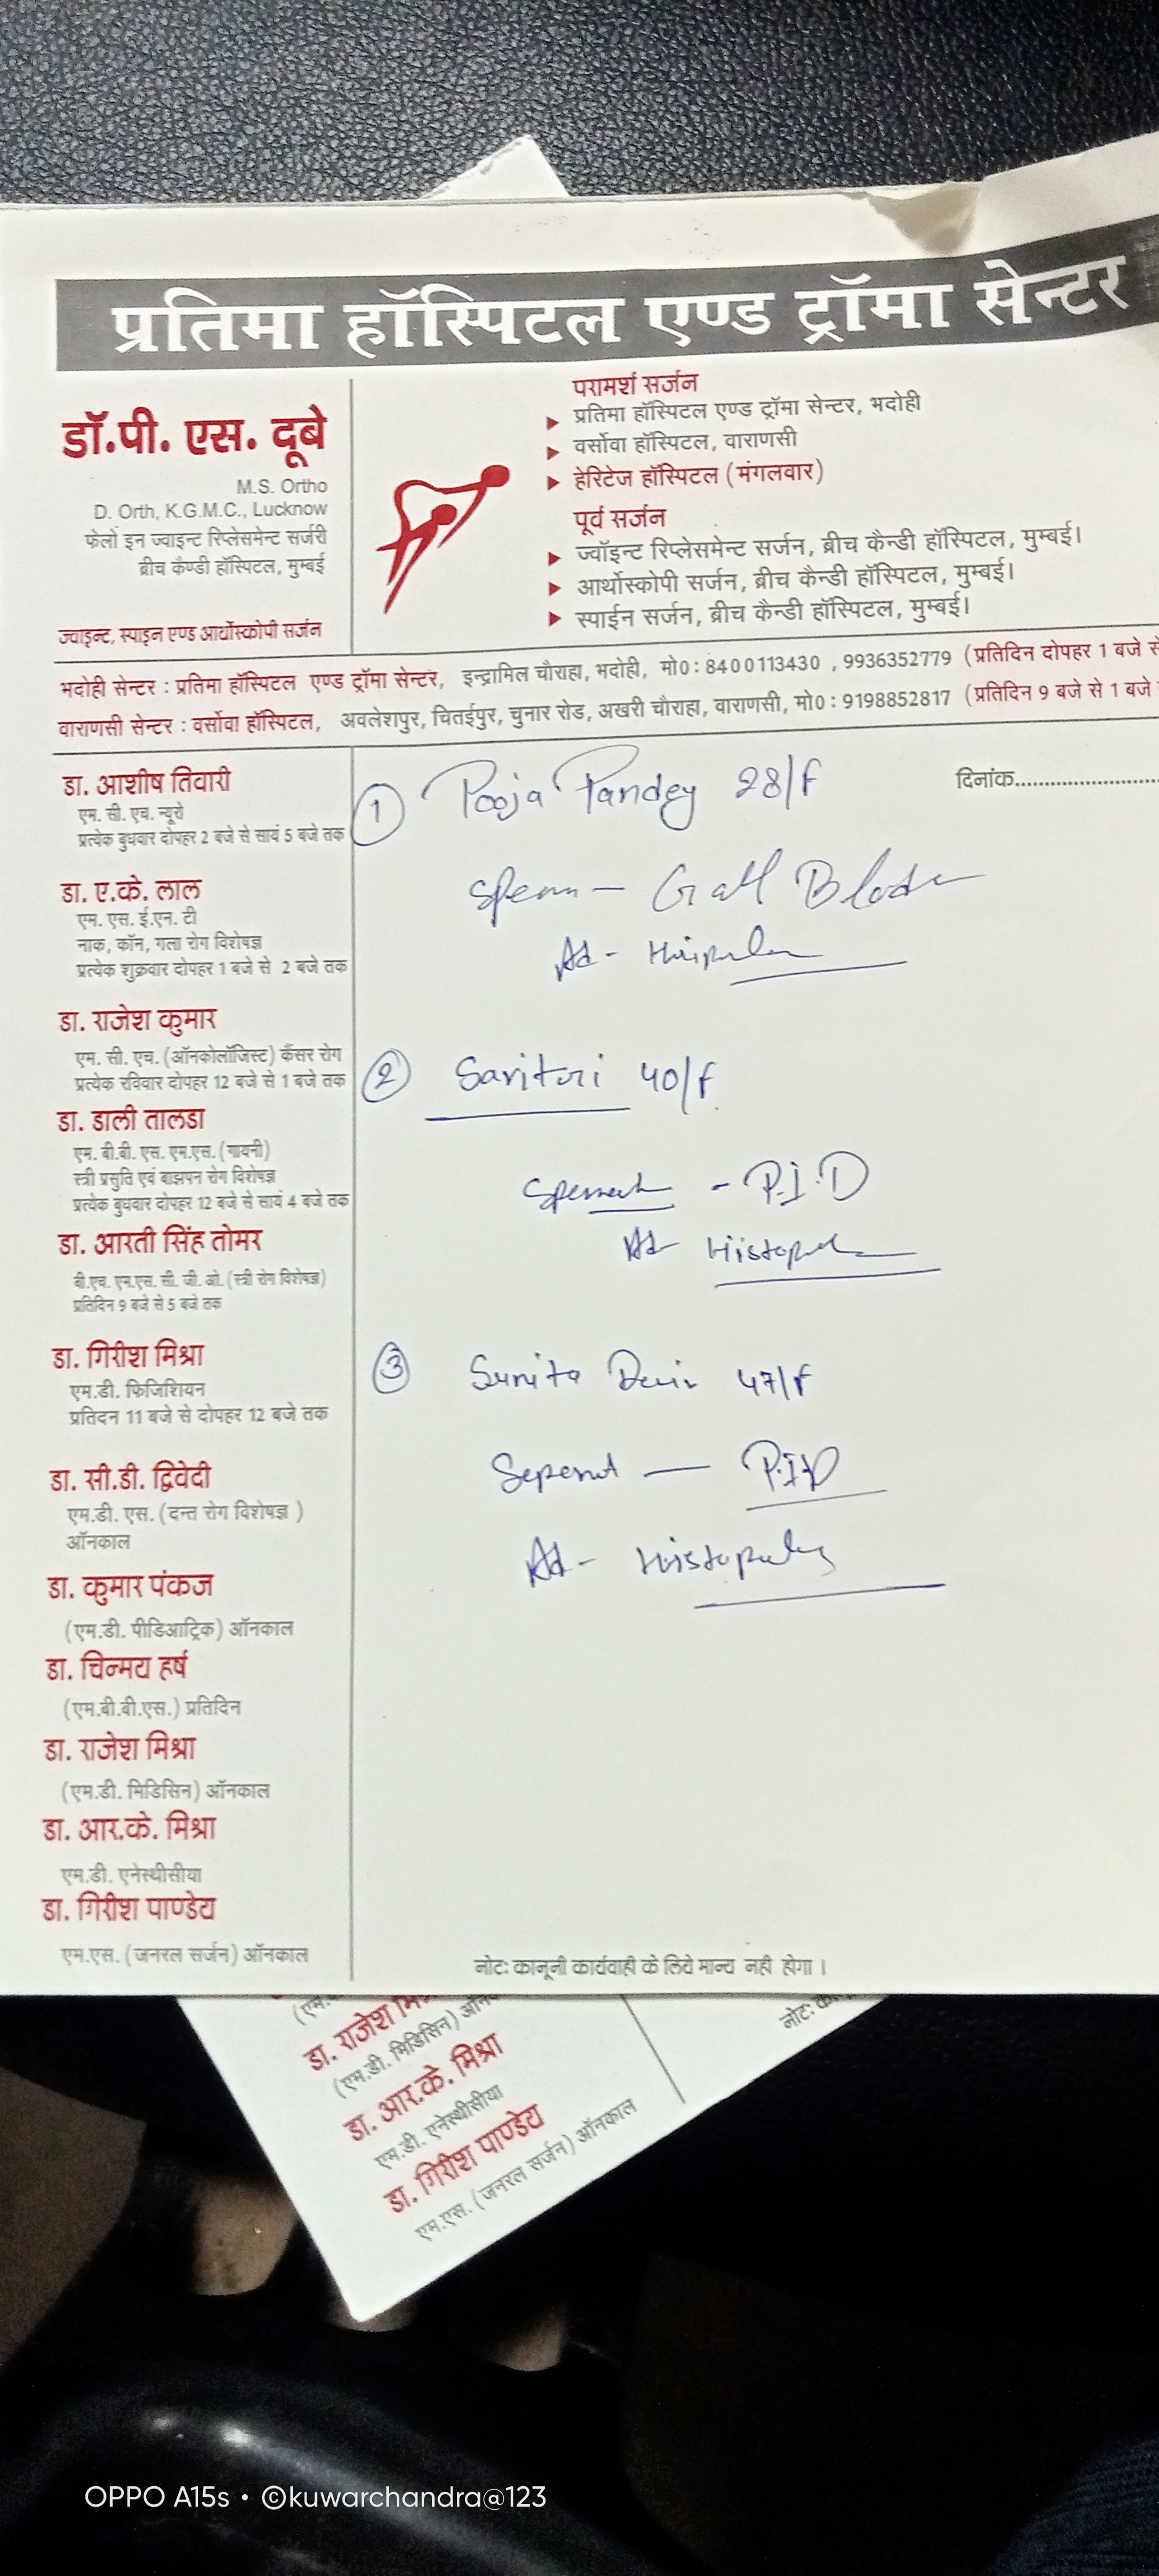 प्रतिमा हॉस्पिटल एण्ड ट्रॉमा सेन्टर
डॉ.पी. एस. दूबे
M.S. Ortho
D. Orth, K.G.M.C., Lucknow
फेलो इन ज्वाइन्ट रिप्लेसमेन्ट सर्जरी
ब्रीच कैण्डी हॉस्पिटल, मुम्बई
ज्वाइन्ट, स्पाइन एण्ड आर्थोस्कोपी सर्जन
परामर्श सर्जन
प्रतिमा हॉस्पिटल एण्ड ट्रॉमा सेन्टर, भदोही
वर्सोवा हॉस्पिटल, वाराणसी
हेरिटेज हॉस्पिटल (मंगलवार)
पूर्व सर्जन
ज्वॉइन्ट रिप्लेसमेन्ट सर्जन, ब्रीच कैन्डी हॉस्पिटल, मुम्बई।
आर्थोस्कोपी सर्जन, ब्रीच कैन्डी हॉस्पिटल, मुम्बई।
स्पाईन सर्जन, ब्रीच कैन्डी हॉस्पिटल, मुम्बई।
भदोही सेन्टर : प्रतिमा हॉस्पिटल एण्ड ट्रॉमा सेन्टर, इन्द्रामिल चौराहा, भदोही, मो0: 8400113430 , 9936352779 (प्रतिदिन दोपहर 1 बजे से
वाराणसी सेन्टर : वर्सोवा हॉस्पिटल, अवलेशपुर, चितईपुर, चुनार रोड, अखरी चौराहा, वाराणसी, मो0: 9198852817 (प्रतिदिन 9 बजे से 1 बजे
दिनांक
डा. आशीष तिवारी
एम. सी. एच. न्यूरो
प्रत्येक बुधवार दोपहर 2 बजे से सायं 5 बजे तक
डा. ए.के. लाल
एम. एस. ई.एन. टी
नाक, कॉन, गला रोग विशेषज्ञ
प्रत्येक शुक्रवार दोपहर 1 बजे से 2 बजे तक
डा. राजेश कुमार
एम. सी. एच. (ऑनकोलॉजिस्ट) कैंसर रोग
प्रत्येक रविवार दोपहर 12 बजे से 1 बजे तक
डा. डाली तालडा
एम. बी.बी. एस. एम.एस. (गायनी)
स्त्री प्रसुति एवं बाझपन रोग विशेषज्ञ
प्रत्येक बुधवार दोपहर 12 बजे से सायं 4 बजे तक
डा. आरती सिंह तोमर
बी.एच. एम.एस. सी. जी. ओ. (स्त्री रोग विशेषज्ञ)
प्रतिदिन 9 बजे से 5 बजे तक
डा. गिरीश मिश्रा
एम.डी. फिजिशियन
प्रतिदन 11 बजे से दोपहर 12 बजे तक
डा. सी.डी. द्विवेदी
एम.डी. एस. (दन्त रोग विशेषज्ञ )
ऑनकाल
डा. कुमार पंकज
(एम.डी. पीडिआट्रिक) ऑनकाल
डा. चिन्मय हर्ष
(एम.बी.बी.एस.) प्रतिदिन
डा. राजेश मिश्रा
(एम.डी. मिडिसिन) ऑनकाल
डा. आर.के. मिश्रा
एम.डी. एनेस्थीसीया
डा. गिरीश पाण्डेय
एम.एस. (जनरल सर्जन) ऑनकाल
① Pooja Pandey 28/F
Gall Bladder
② Savitri 40/F
- P.I.D
③ Sunita Devi 47/F
— P.I.D
नोटः कानूनी कार्यवाही के लिये मान्य नही होगा ।
डा. राजेश
(एम.डी. मिडिसिन)
डा. आर.के. मिश्रा
एम.डी. एनेस्थीसीया
डा. गिरीश पाण्डेय
एम.एस. (जनरल सर्जन) ऑनकाल
नोटः
OPPO A15s • ©kuwarchandra@123